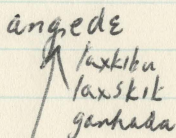 angede
laxkibu
laxskik
ganhada